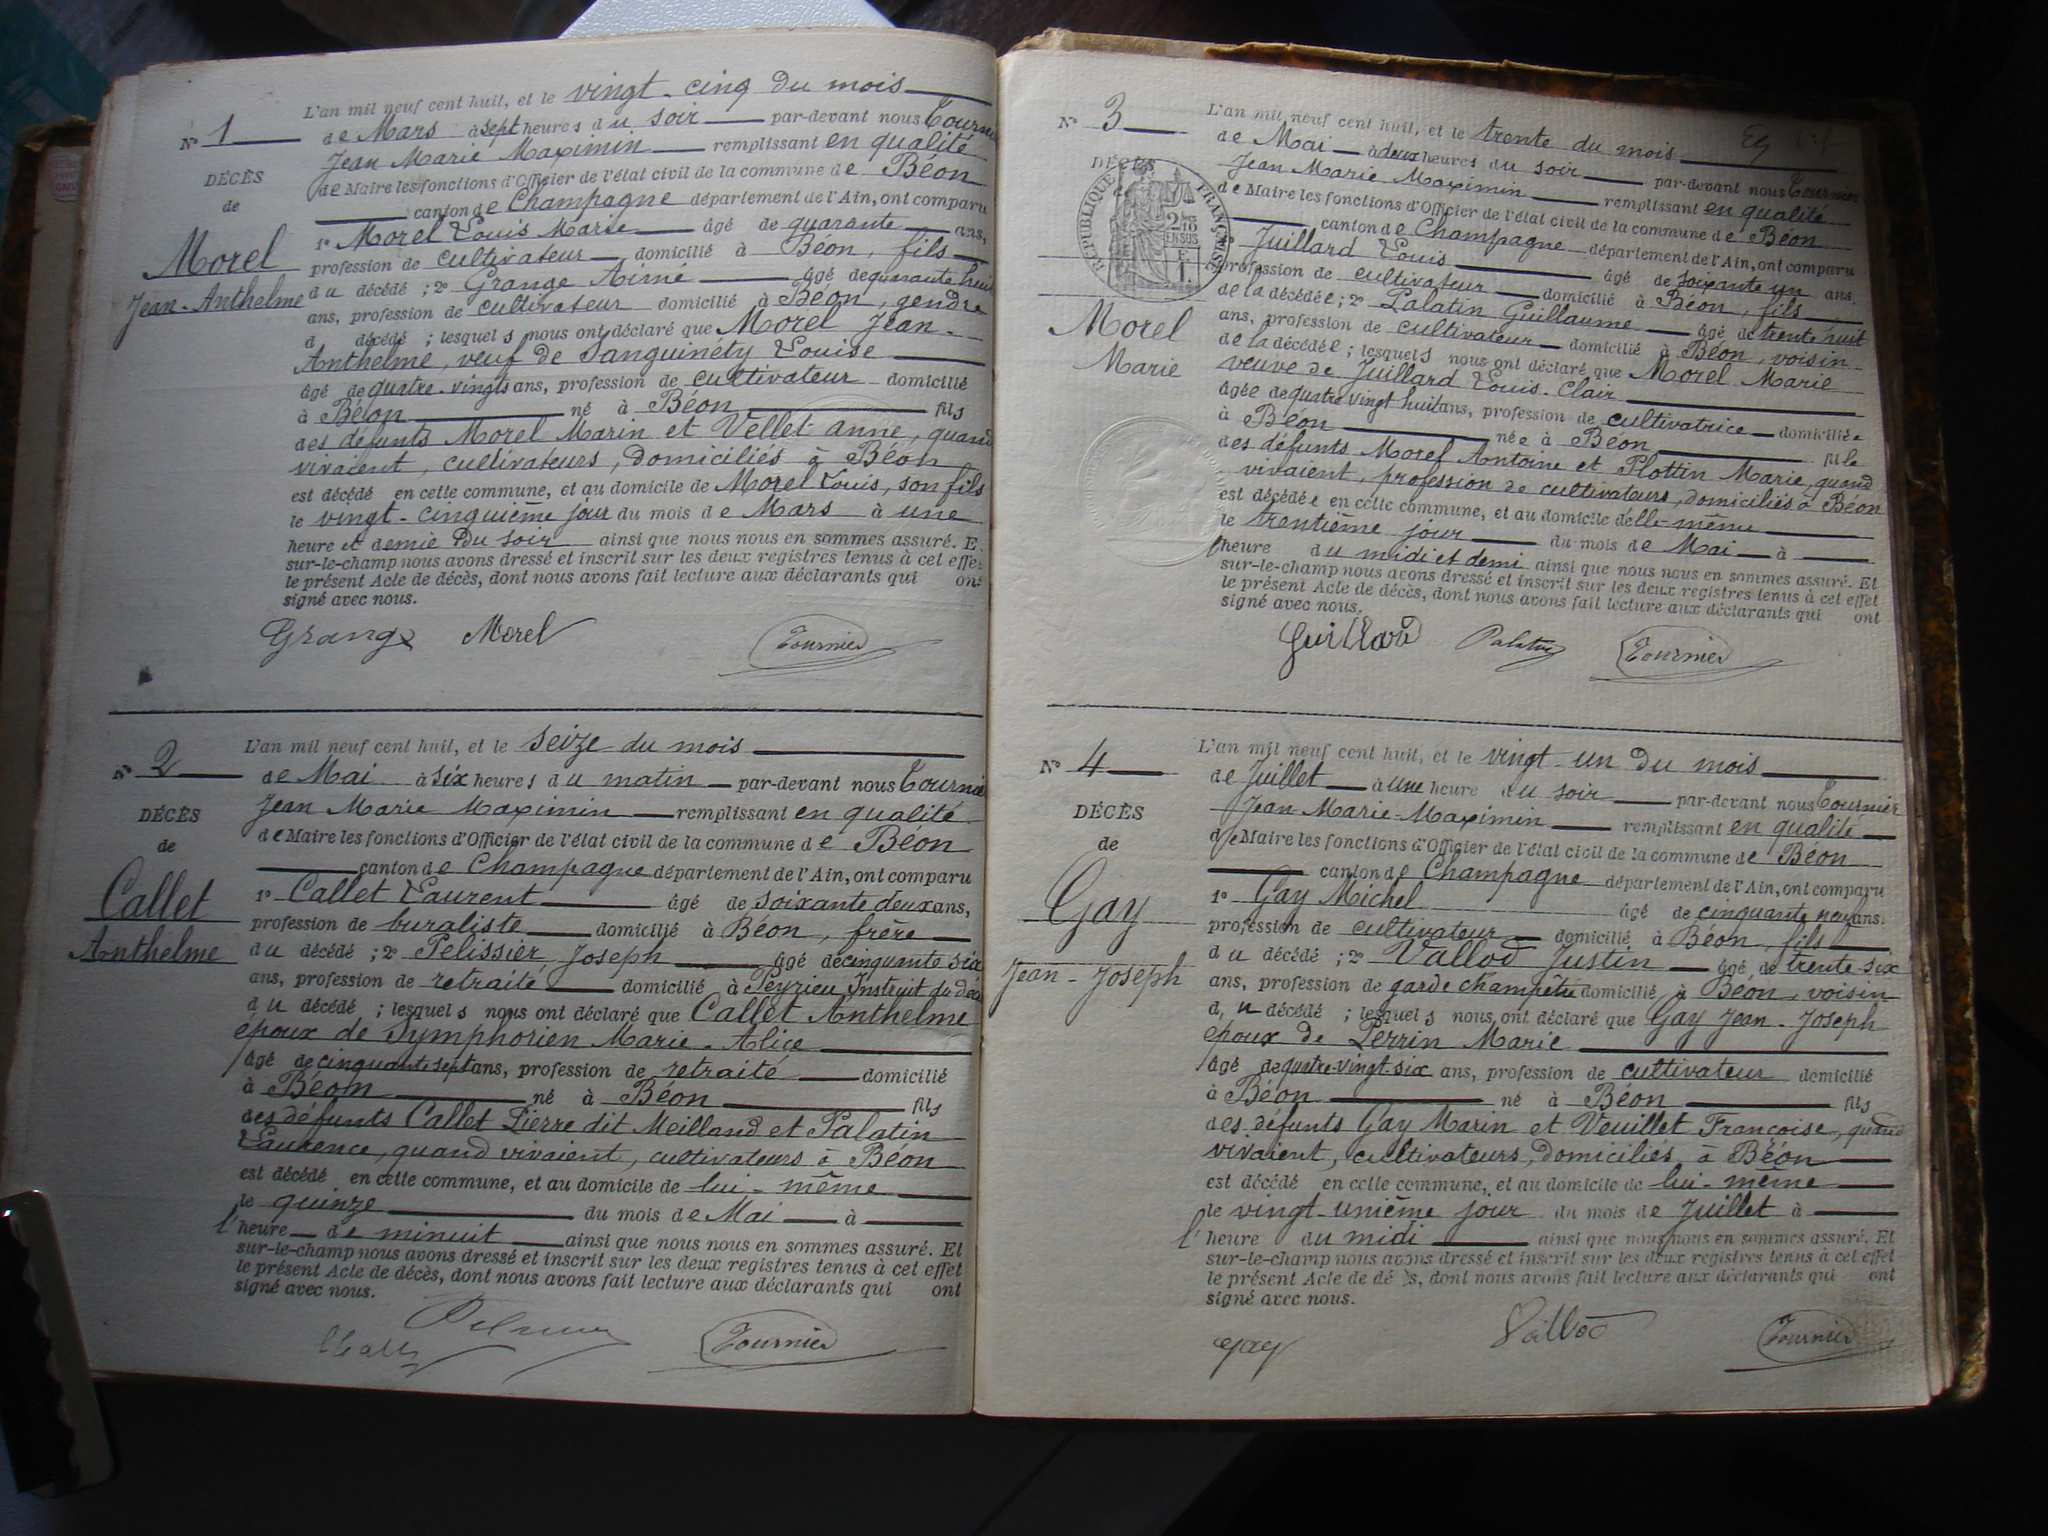 N° 1
DÉCÈS
de
Morel
Jean-Anthelme
L'an mil neuf cent huit, et le vingt-cinq du mois
de Mars à sept heures du soir par-devant nous Tournier
Jean Marie Maximin remplissant en qualité
de Maire les fonctions d'Officier de l'état civil de la commune de Béon
canton de Champagne département de l'Ain, ont comparu
1° Morel Louis Marie âgé de quarante ans,
profession de cultivateur domicilié à Béon, fils
du décédé ; 2° Grange Aimé âgé de quarante huit
ans, profession de cultivateur domicilié à Béon, gendre
d décédé ; lesquels nous ont déclaré que Morel Jean-
Anthelme, veuf de Sanguinéty Louise
âgé de quatre-vingts ans, profession de cultivateur domicilié
à Béon né à Béon fils
des défunts Morel Marin et Vellet anne, quand
vivaient, cultivateurs, domiciliés à Béon
est décédé en cette commune, et au domicile de Morel Louis, son fils
le vingt-cinquième jour du mois de Mars à une
heure et demie du soir ainsi que nous nous en sommes assuré. E
sur-le-champ nous avons dressé et inscrit sur les deux registres tenus à cet effet
le présent Acte de décès, dont nous avons fait lecture aux déclarants qui ont
signé avec nous.
Grange Morel Tournier
N° 2
DÉCÈS
de
Callet
Anthelme
L'an mil neuf cent huit, et le seize du mois
de Mai à six heures du matin par-devant nous Tournier
Jean Marie Maximin remplissant en qualité
de Maire les fonctions d'Officier de l'état civil de la commune de Béon
canton de Champagne département de l'Ain, ont comparu
1° Callet Laurent âgé de soixante deux ans,
profession de buraliste domicilié à Béon, frère
du décédé ; 2° Pelissier Joseph âgé de cinquante six
ans, profession de retraité domicilié à Peyrieu Instruit du déc
du décédé ; lesquels nous ont déclaré que Callet Anthelme
époux de Symphorien Marie-Alice
âgé de cinquante sept ans, profession de retraité domicilié
à Béon né à Béon fils
des défunts Callet Pierre dit Meilland et Palatin
Laurence, quand vivaient, cultivateurs à Béon
est décédé en cette commune, et au domicile de lui-même
le quinze du mois de Mai à
l'heure de minuit ainsi que nous nous en sommes assuré. Et
sur-le-champ nous avons dressé et inscrit sur les deux registres tenus à cet effet
le présent Acte de décès, dont nous avons fait lecture aux déclarants qui ont
signé avec nous.
Tournier
N° 3
DÉCÈS
RÉPUBLIQUE FRANÇAISE
Morel
Marie
L'an mil neuf cent huit, et le trente du mois
de Mai à deux heures du soir par-devant nous Tournier
Jean Marie Maximin remplissant en qualité
de Maire les fonctions d'Officier de l'état civil de la commune de Béon
canton de Champagne département de l'Ain, ont comparu
Juillard Louis âgé de soixante un ans,
profession de cultivateur domicilié à Béon, fils
de la décédée ; 2° Palatin Guillaume âgé de trente huit
ans, profession de cultivateur domicilié à Béon, voisin
de la décédée ; lesquels nous ont déclaré que Morel Marie
veuve de Juillard Louis-Clair
âgée de quatre vingt huit ans, profession de cultivatrice domiciliée
à Béon née à Béon fille
des défunts Morel Antoine et Plottin Marie, quand
vivaient, profession de cultivateurs, domiciliés à Béon
est décédée en cette commune, et au domicile d'elle-même
le trentième jour du mois de Mai à
l'heure du midi et demi ainsi que nous nous en sommes assuré. Et
sur-le-champ nous avons dressé et inscrit sur les deux registres tenus à cet effet
le présent Acte de décès, dont nous avons fait lecture aux déclarants qui ont
signé avec nous.
Guillard Palatin Tournier
N° 4
DÉCÈS
de
Gay
Jean-Joseph
L'an mil neuf cent huit, et le vingt-un du mois
de Juillet à une heure du soir par-devant nous Tournier
Jean Marie-Maximin remplissant en qualité
de Maire les fonctions d'Officier de l'état civil de la commune de Béon
canton de Champagne département de l'Ain, ont comparu
1° Gay Michel âgé de cinquante neuf ans.
profession de cultivateur domicilié à Béon, fils
du décédé ; 2° Vallod Justin âgé de trente-six
ans, profession de garde champêtre domicilié à Béon, voisin
du décédé ; lesquels nous ont déclaré que Gay Jean-Joseph
époux de Perrin Marie
âgé de quatre-vingt-six ans, profession de cultivateur domicilié
à Béon né à Béon fils
des défunts Gay Marin et Veuillet Françoise, quand
vivaient, cultivateurs, domiciliés, à Béon
est décédé en cette commune, et au domicile de lui-même
le vingt-unième jour du mois de Juillet à
l'heure du midi ainsi que nous nous en sommes assuré. Et
sur-le-champ nous avons dressé et inscrit sur les deux registres tenus à cet effet
le présent Acte de dé s, dont nous avons fait lecture aux déclarants qui ont
signé avec nous.
Gay Vallod Tournier